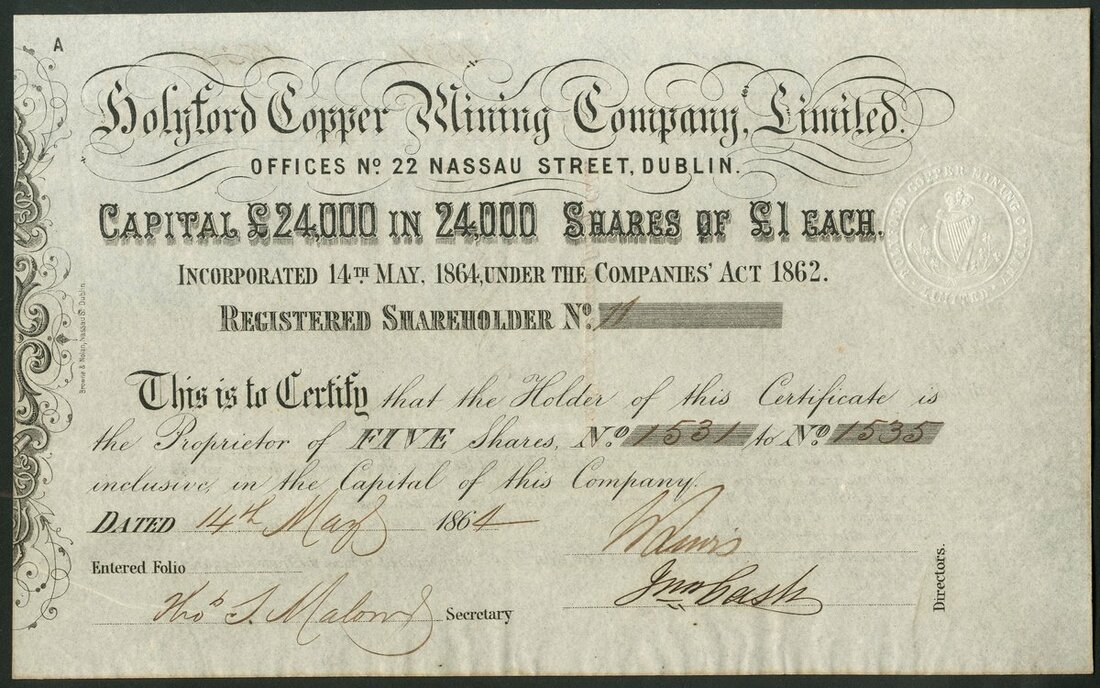 A
Holyford Copper Mining Company, Limited.
OFFICES No. 22 NASSAU STREET, DUBLIN.
CAPITAL £24,000 IN 24,000 SHARES OF £1 EACH.
INCORPORATED 14TH MAY, 1864, UNDER THE COMPANIES' ACT 1862.
REGISTERED SHAREHOLDER No. 11
This is to Certify that the Holder of this Certificate is
the Proprietor of FIVE Shares, No. 1531 to No. 1535
inclusive, in the Capital of this Company.
DATED 14th May 1864
Entered Folio
Jno Cash
Thos. S. Secretary
Directors.
Browne & Nolan, Nassau St. Dublin.
HOLYFORD COPPER MINING COMPANY
LIMITED